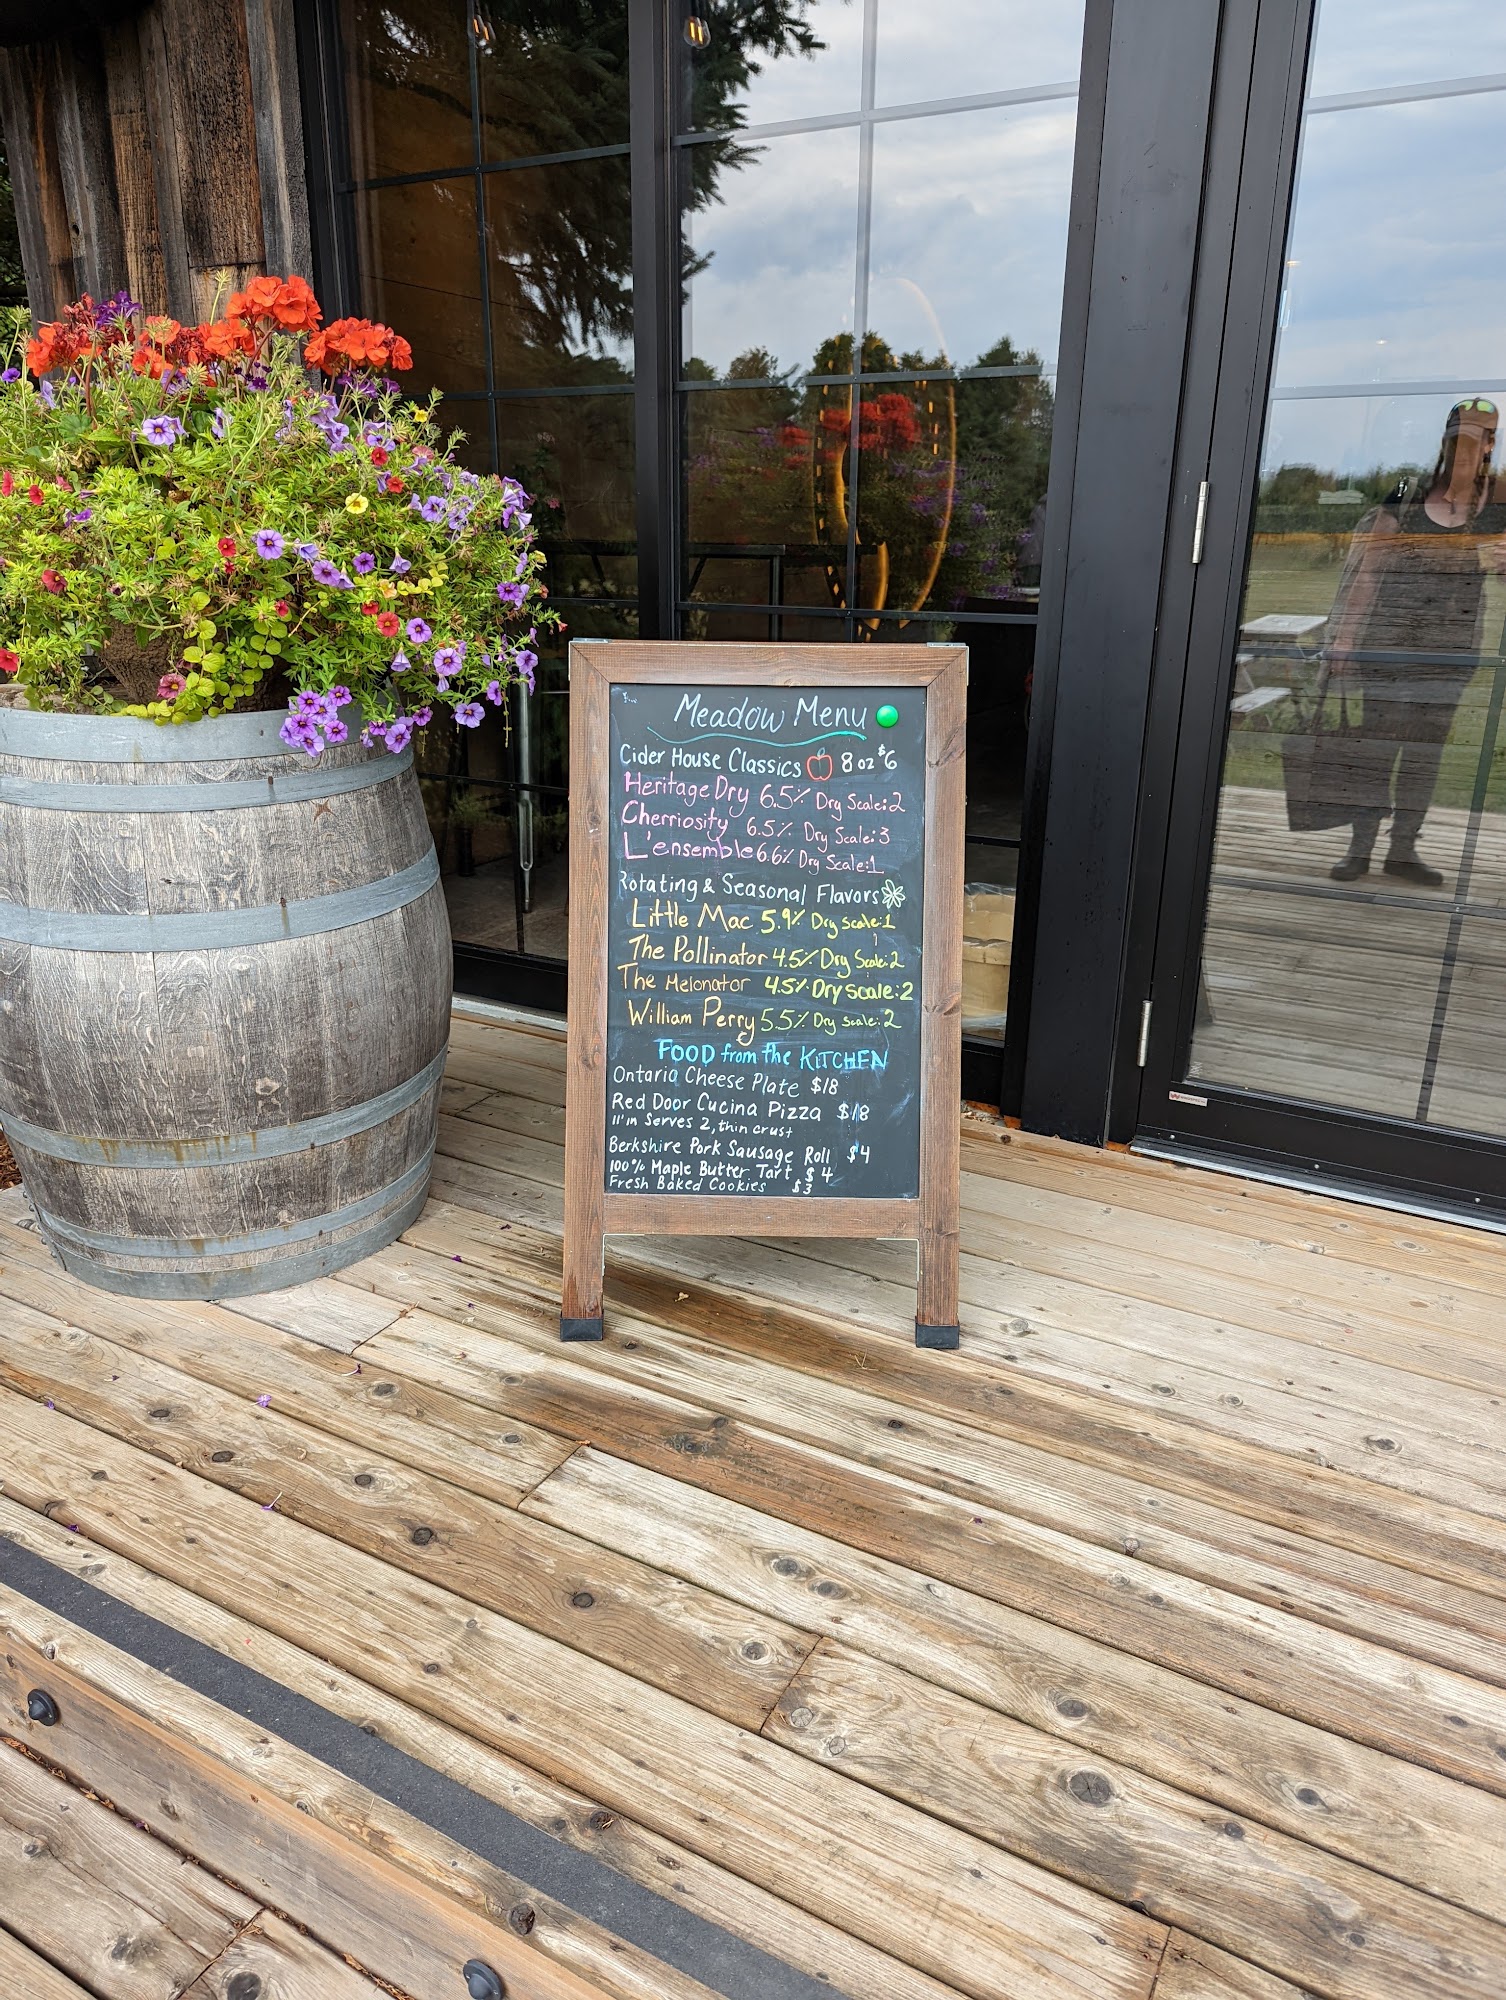 Meadow Menu
Cider House Classics 8 oz $6
Heritage Dry 6.5% Dry Scale:2
Cherriosity 6.5% Dry Scale: 3
L'ensemble 6.6% Dry Scale:1
Rotating & Seasonal Flavors
Little Mac 5.9% Dry Scale:1
The Pollinator 4.5% Dry Scale:2
The Melonator 4.5% Dry Scale:2
William Perry 5.5% Dry Scale:2
FOOD from the KITCHEN
Ontario Cheese Plate $18
Red Door Cucina Pizza $18
11"in Serves 2, thin crust
Berkshire Pork Sausage Roll $4
100% Maple Butter Tart $4
Fresh Baked Cookies $3